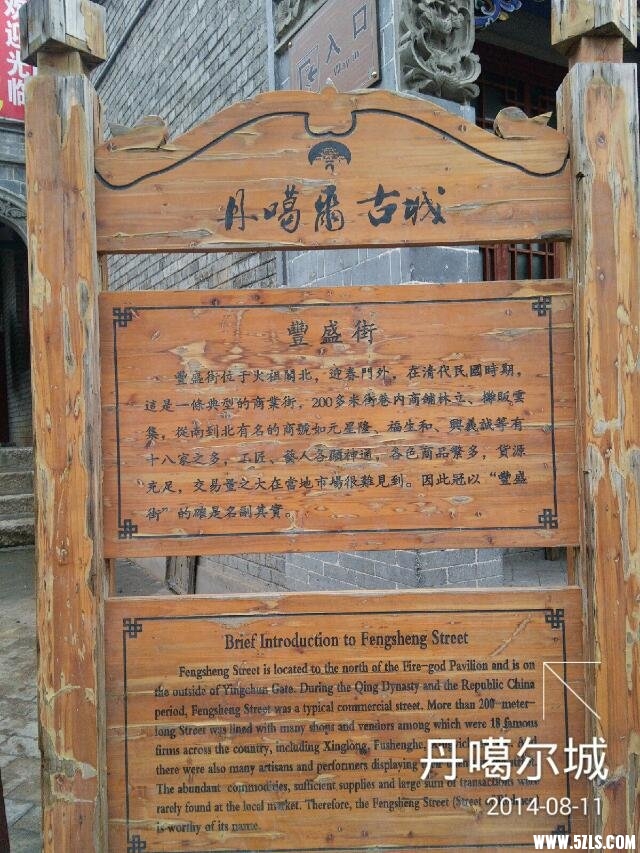 欢迎光临
入口
Way in
丹噶爾古城
豐盛街
豐盛街位于火祖閣北，迎春門外，在清代民國時期，
這是一條典型的商業街，200多米街巷内商鋪林立、攤販雲
集，從南到北有名的商號如元星隆、福生和、興義誠等有
十八家之多，工匠、藝人各顯神通，各色商品繁多，貨源
充足，交易量之大在當地市場很難見到。因此冠以“豐盛
街”的確是名副其實。
Brief Introduction to Fengsheng Street
Fengsheng Street is located to the north of the Fire-god Pavilion and is on
the outside of Yingchun Gate. During the Qing Dynasty and the Republic China
period, Fengsheng Street was a typical commercial street. More than 200 meter-
long Street was lined with many shops and vendors among which were 18 famous
firms across the country, including Xinglong, Fushenghe,
there were also many artisans and performers displaying
The abundant commodities, sufficient supplies and large sum of transactions were
rarely found at the local market. Therefore, the Fengsheng Street (Street
is worthy of its name.
丹噶尔城
2014-08-11
WWW.5ZLS.COM